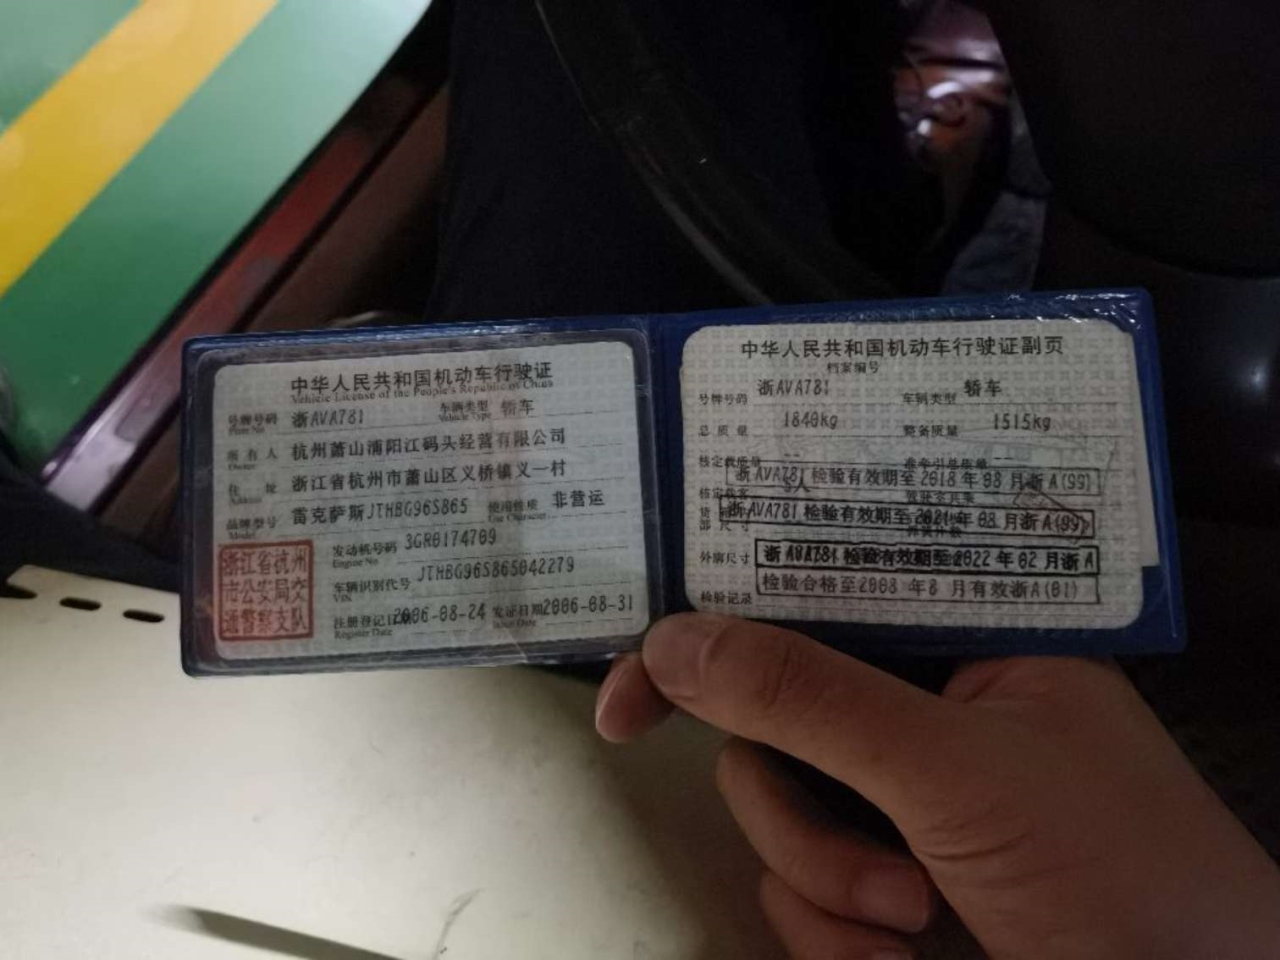 中华人民共和国机动车行驶证
Vehicle License of the People's Republic of China
号牌号码 浙AVA781 车辆类型 轿车
Plate No. Vehicle Type
所有人 杭州萧山浦阳江码头经营有限公司
Owner
住址 浙江省杭州市萧山区义桥镇义一村
Address
品牌型号 雷克萨斯JTHBG96S865 使用性质 非营运
Model Use Character
浙江省杭州市公安局交通警察支队
发动机号码 3GR0174709
Engine No.
车辆识别代号 JTHBG96S865042279
VIN
注册登记日期 2006-08-24 发证日期 2006-08-31
Register Date Issue Date
中华人民共和国机动车行驶证副页
档案编号
号牌号码 浙AVA781 车辆类型 轿车
总质量 1840kg 整备质量 1515kg
核定载质量 -- 准牵引总质量 --
浙AVA781 检验有效期至2018年08月浙A(99)
核定载客 5人 驾驶室共乘
浙AVA781 检验有效期至2021年08月浙A(99)
外廓尺寸 浙AVA781 检验有效期至2022年02月浙A
检验合格至2008年8月有效浙A(01)
检验记录